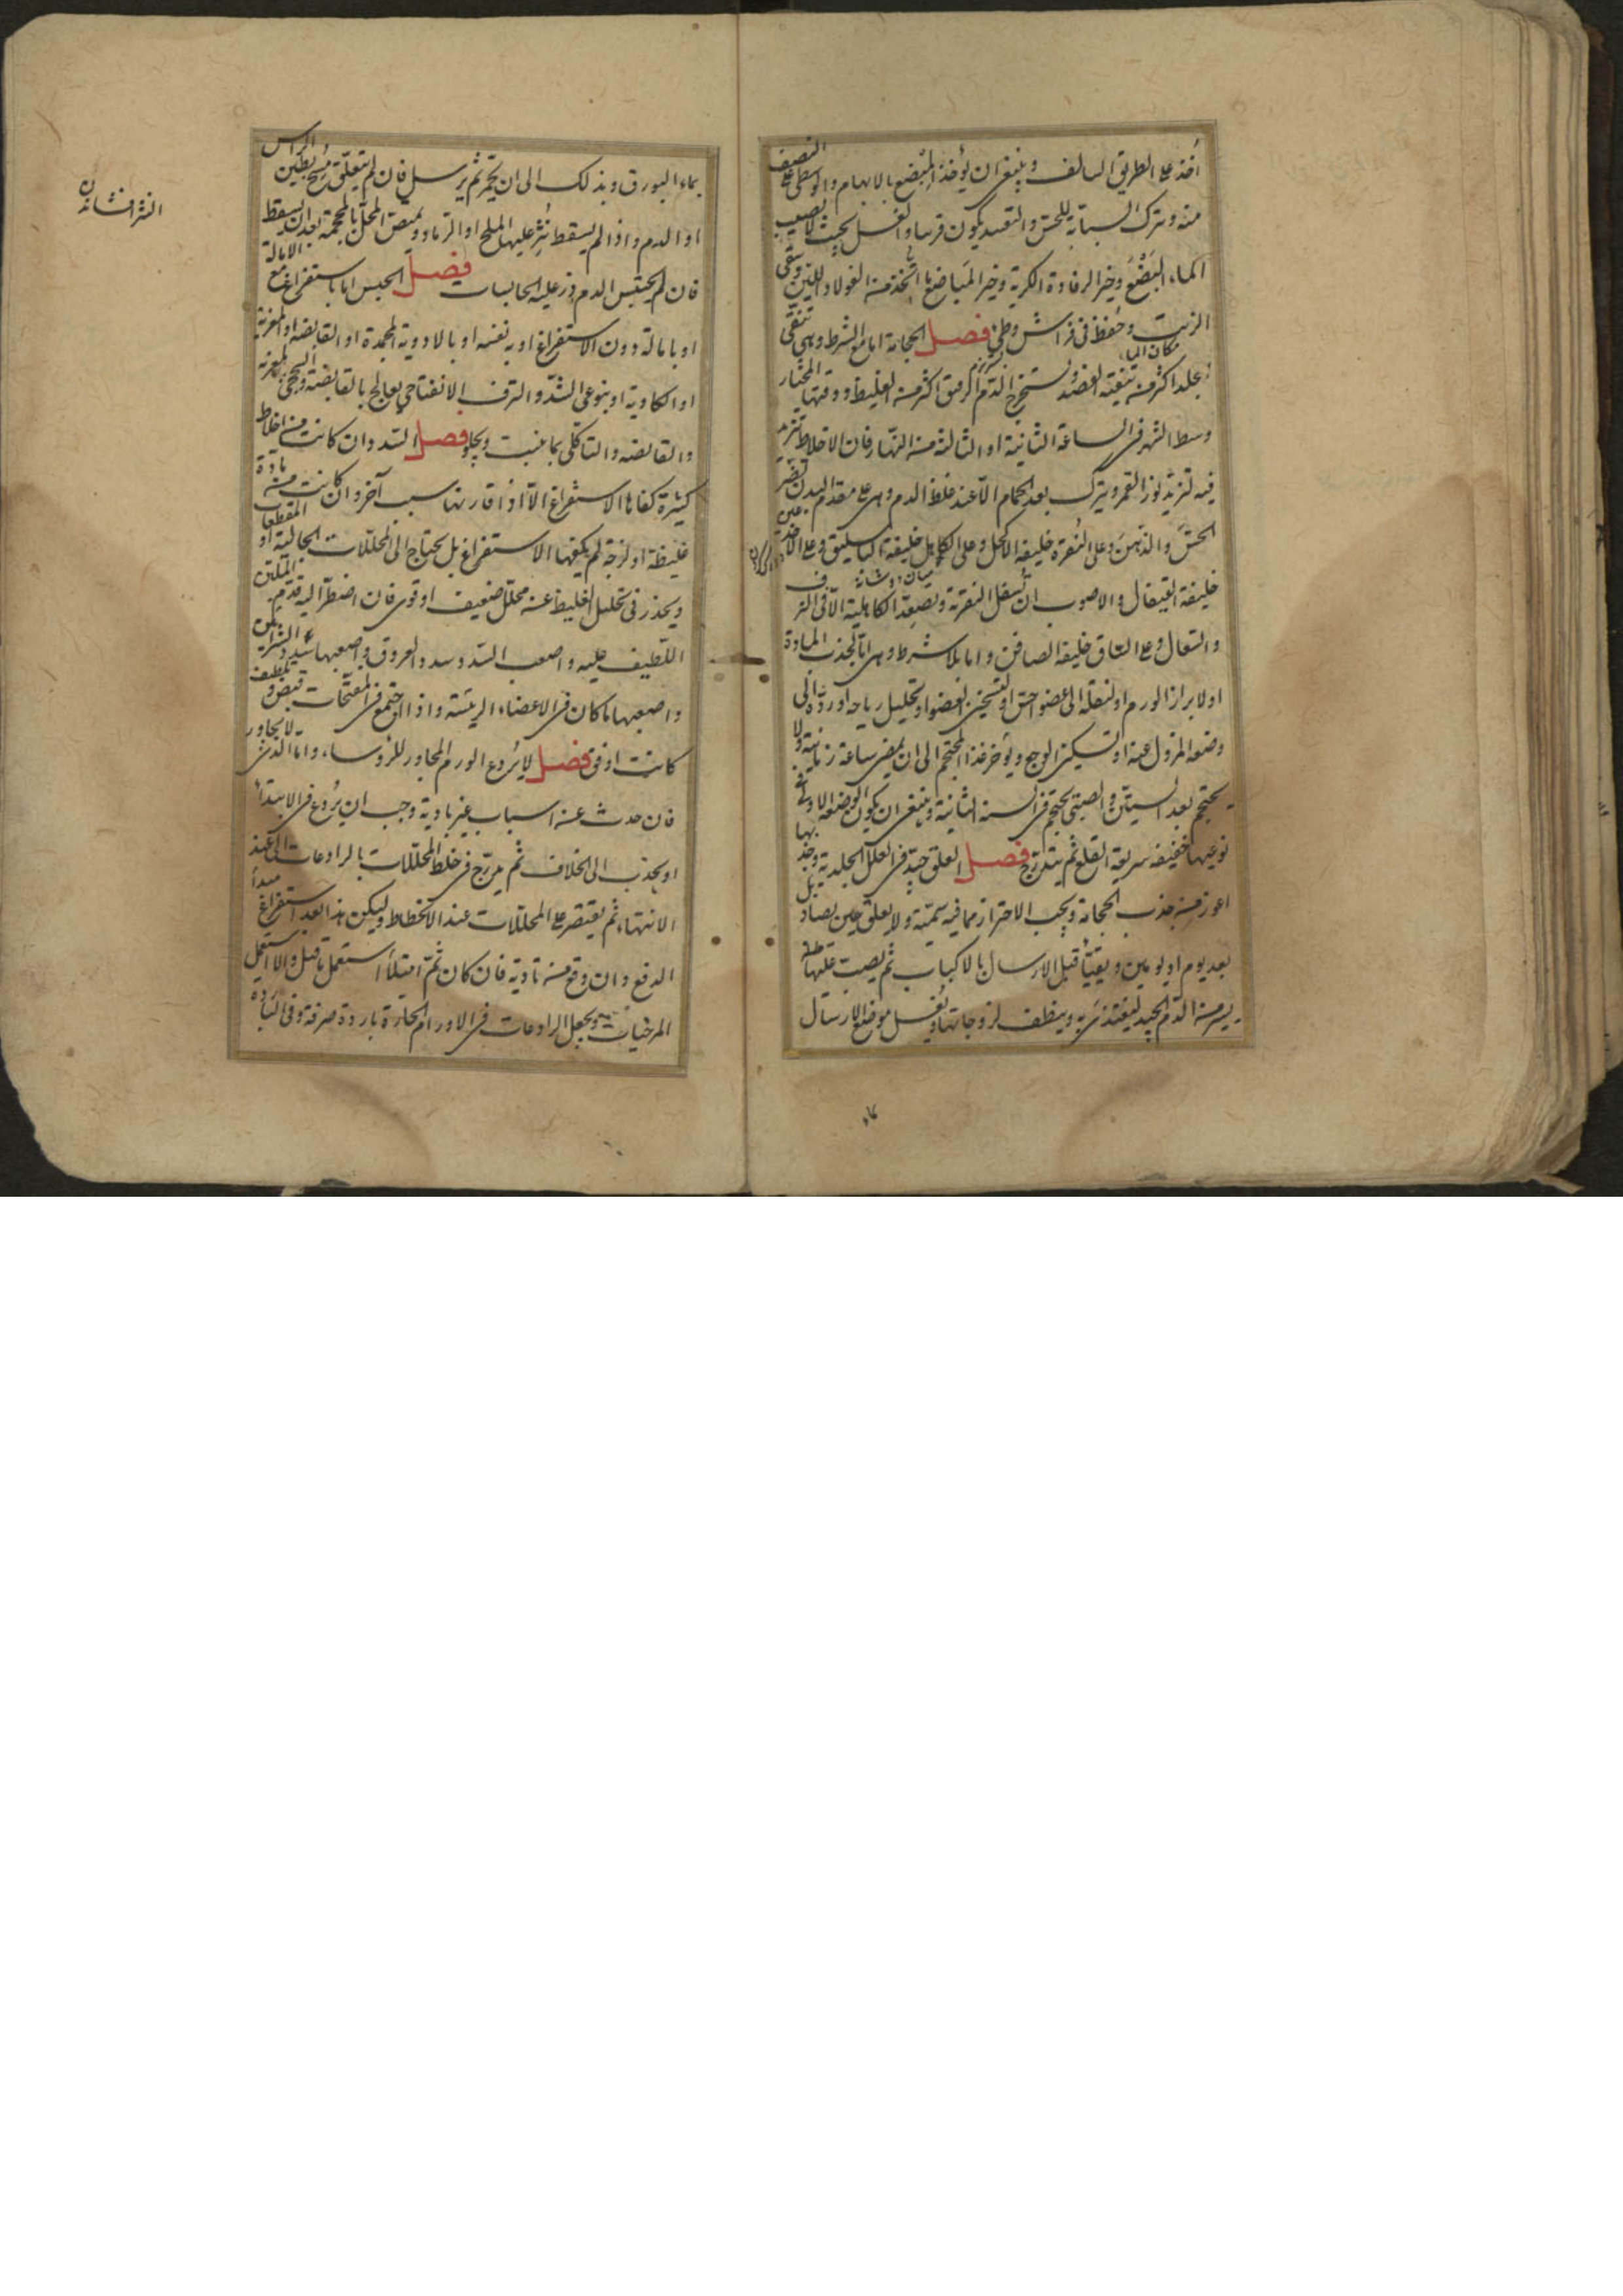 أخذ على الطريق السالف وينبغي ان يؤخذ المبضع بالابهام والوسطى على النصف
منه ويترك السبابة للحس والتقييد يكون قريبا والغسل بحيث لا يصيب
الماء البضع وخير الرفادة الكرية وخير المباضع ما اتخذ من الفولاد اللين وسقى
الزيت وحفظ في فراش وطئ فصل الحجامة اما مع الشرط وهى تنقى
الجلد اكثر من تنقية الفصد وتستخرج الدم الرقيق اكثر من الغليظ ووقتها المختار
وسط الشهر في الساعة الثانية او الثالثة من النهار فان الاخلاط تزيد
فيه لتزيد نور القمر ويترك بعد الحمام الا عند غلظ الدم وهى على مقدم البدن تضر
الحس والذهن وعلى النقرة خليفة الاكحل وعلى الكاهل خليفة الباسليق وعلى الاخدعين
خليفة القيفال والاصوب ان تسفل النقرية وتصعد الكاهلية الا فى النزف
والسعال وعلى الساق خليفة الصافن واما بلا شرط وهى اما لجذب المادة
او لابراز الورم او لنقله الى عضو اخس او لتسخين العضو او تحليل رياحه او رده الى
وضعه المزول عنه او لتسكين الوجع ويؤخر غذا المحتجم الى ان يمضى ساعة زمانية ولا
يحتجم بعد الستين والصبى يحتجم فى السنة الثانية وينبغى ان يكون الوضعة الاولى
خفيفة سريعة القلع ثم يتدرج فصل العلق جيد فى العلل الجلدية وجذبها
اغور من جذب الحجامة ويجب الاحتراز مما فيه سمية ولا يعلق حين يصاد بل
بعد يوم او يومين ويقيأ قبل الارسال بالاكباب ثم يصب عليها
يسير من الدم الجيد ليغتذى به وينظف لزوجاتها ويغسل موضع الارسال
بماء البورق ويدلك الى ان يحمر ثم يرسل فان لم يتعلق مسح بطين الراس
او الدم واذا لم يسقط نثر عليها الملح او الرماد ويمص المحل بالمحجمة بعد ان يسقط
فان لم يحتبس الدم ذر عليه الحابسات فصل الحبس اما باستفراغ مع الامالة
او بامالة دون الاستفراغ او به نفسه او بالادوية المجمدة او القابضة او المغرية
او الكاوية او بنوعى الشد والنزف الانفتاحى يعالج بالقابضة
والقابضة والتاكلى بما ينبت ويجلو فصل السدد ان كانت من اخلاط
كثيرة كفاها الاستفراغ الا اذا قارنها سبب آخر وان كانت من مادة
غليظة او لزجة لم يكفها الاستفراغ بل يحتاج الى المحللات الجالية او المقطعات
ويحذر فى تحليل الغليظ عن محلل ضعيف او قوى فان اضطر اليه قدم الملين
اللطيف عليه واصعب السدد سدد العروق واصعبها سدد الشرايين
واصعبها ما كان فى الاعضاء الرئيسة واذا اجتمع فى المفتحات قبض وتلطيف
كانت اوفق فصل لا يردع الورم المجاور للرؤساء واما الذى لا يجاور
فان حدث عن اسباب غير بادية وجب ان يردع فى الابتداء
او يجذب الى الخلاف ثم يدرج فى خلط المحللات بالرادعات الى عند
الانتهاء ثم يقتصر على المحللات عند الانحطاط وليكن هذا بعد استفراغ
الدفع وان وقع من بادية فان كان ثم امتلاء استعمل ما قيل والا استعمل
المرخيات ويجعل الرادعات فى الاورام الحارة باردة صرفة وفى الباردة
النثر افشاندن
مكان الماء
ميان دو شانه